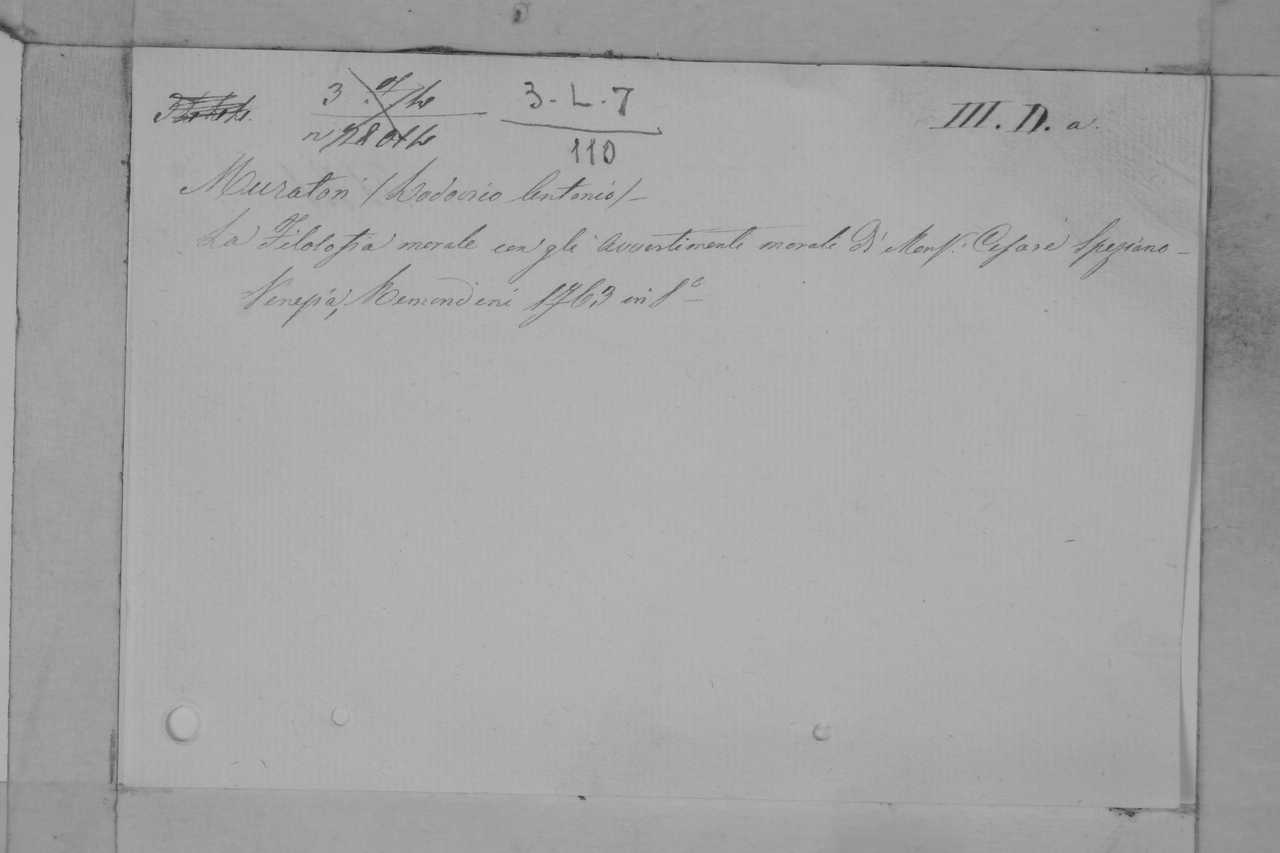 3-L-7
110
III. D. a.
Muratori (Lodovico Antonio) –
La Filosofia morale con gli avvertimenti morali di Monsr. Cesare Speziano –
Venezia, Remondini 1763 in 8º –